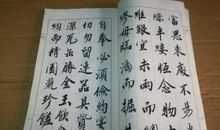 當思來處不易半
絲半縷恒念物力
維艱宜未雨而綢
繆毋臨渴而掘井
自奉必須儉約宴
切勿留連器具質
潔瓦缶勝金玉飲
約而精園蔬愈珍饈